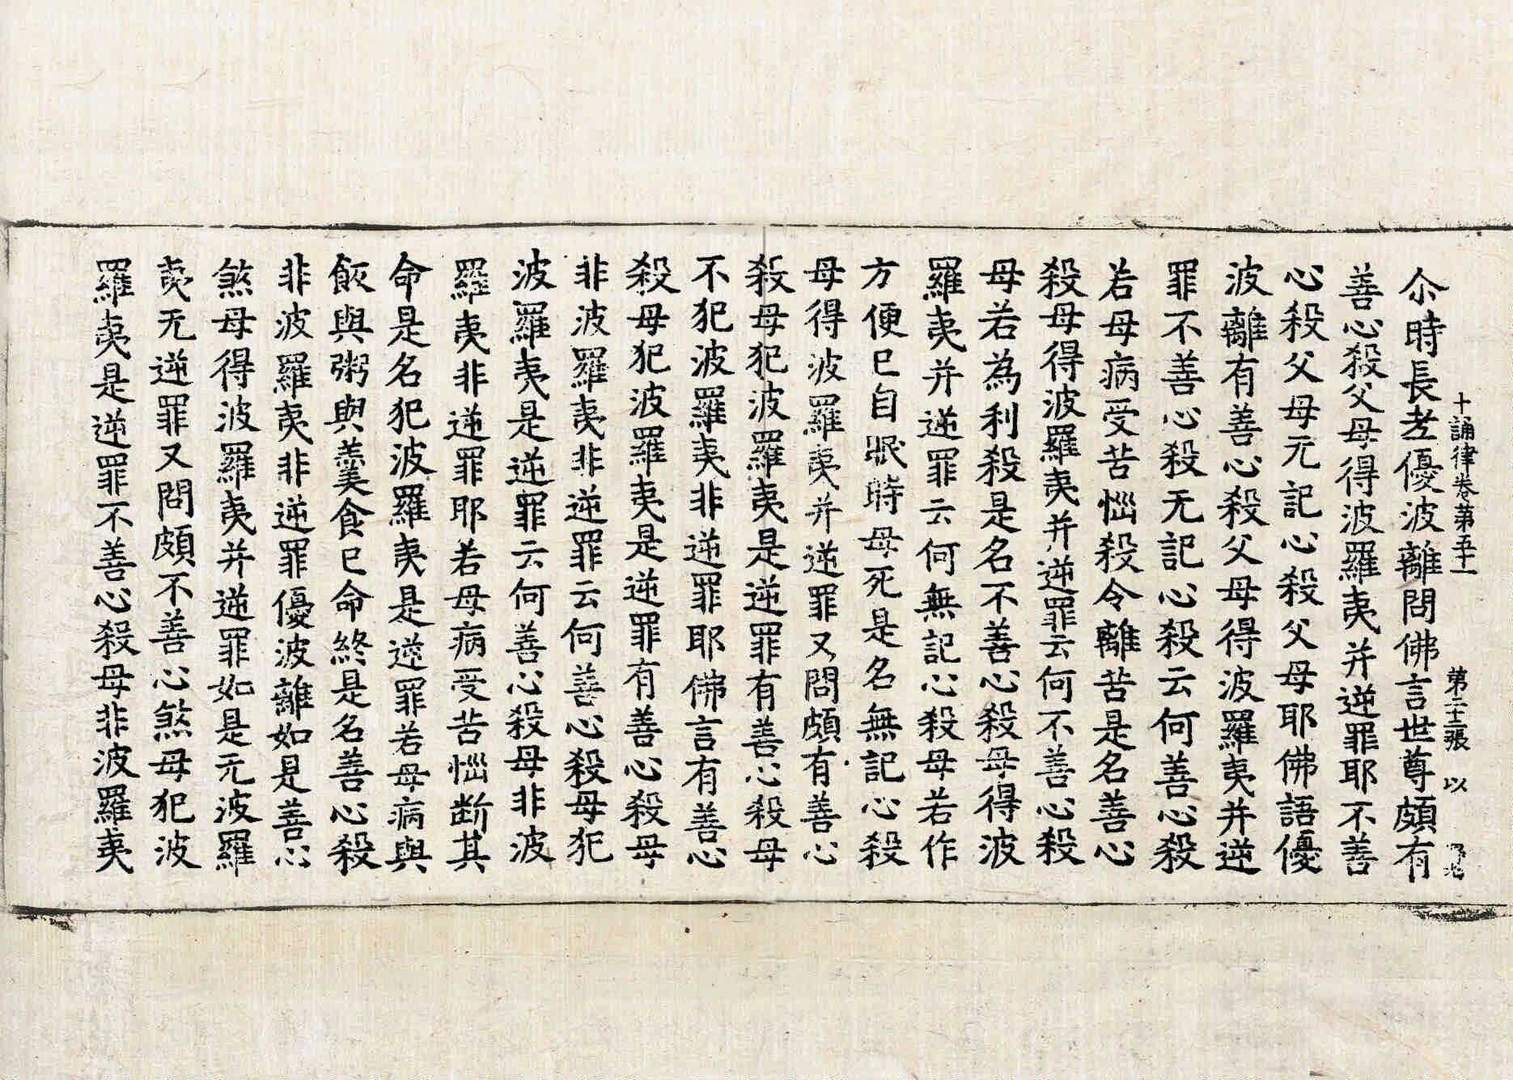 十誦律卷第五十一 第二十三張 以
尒時長老優波離問佛言世尊頗有
善心殺父母得波羅夷并逆罪耶不善
心殺父母无記心殺父母耶佛語優
波離有善心殺父母得波羅夷并逆
罪不善心殺无記心殺云何善心殺
若母病受苦惱殺令離苦是名善心
殺母得波羅夷并逆罪云何不善心殺
母若為利殺是名不善心殺母得波
羅夷并逆罪云何無記心殺母若作
方便已自眠時母死是名無記心殺
母得波羅夷并逆罪又問頗有善心
殺母犯波羅夷是逆罪有善心殺母
不犯波羅夷非逆罪耶佛言有善心
殺母犯波羅夷是逆罪有善心殺母
非波羅夷非逆罪云何善心殺母犯
波羅夷是逆罪云何善心殺母非波
羅夷非逆罪耶若母病受苦惱断其
命是名犯波羅夷是逆罪若母病與
飯與粥與羹食已命終是名善心殺
非波羅夷非逆罪優波離如是善心
煞母得波羅夷并逆罪如是无波羅
夷无逆罪又問頗不善心煞母犯波
羅夷是逆罪不善心殺母非波羅夷